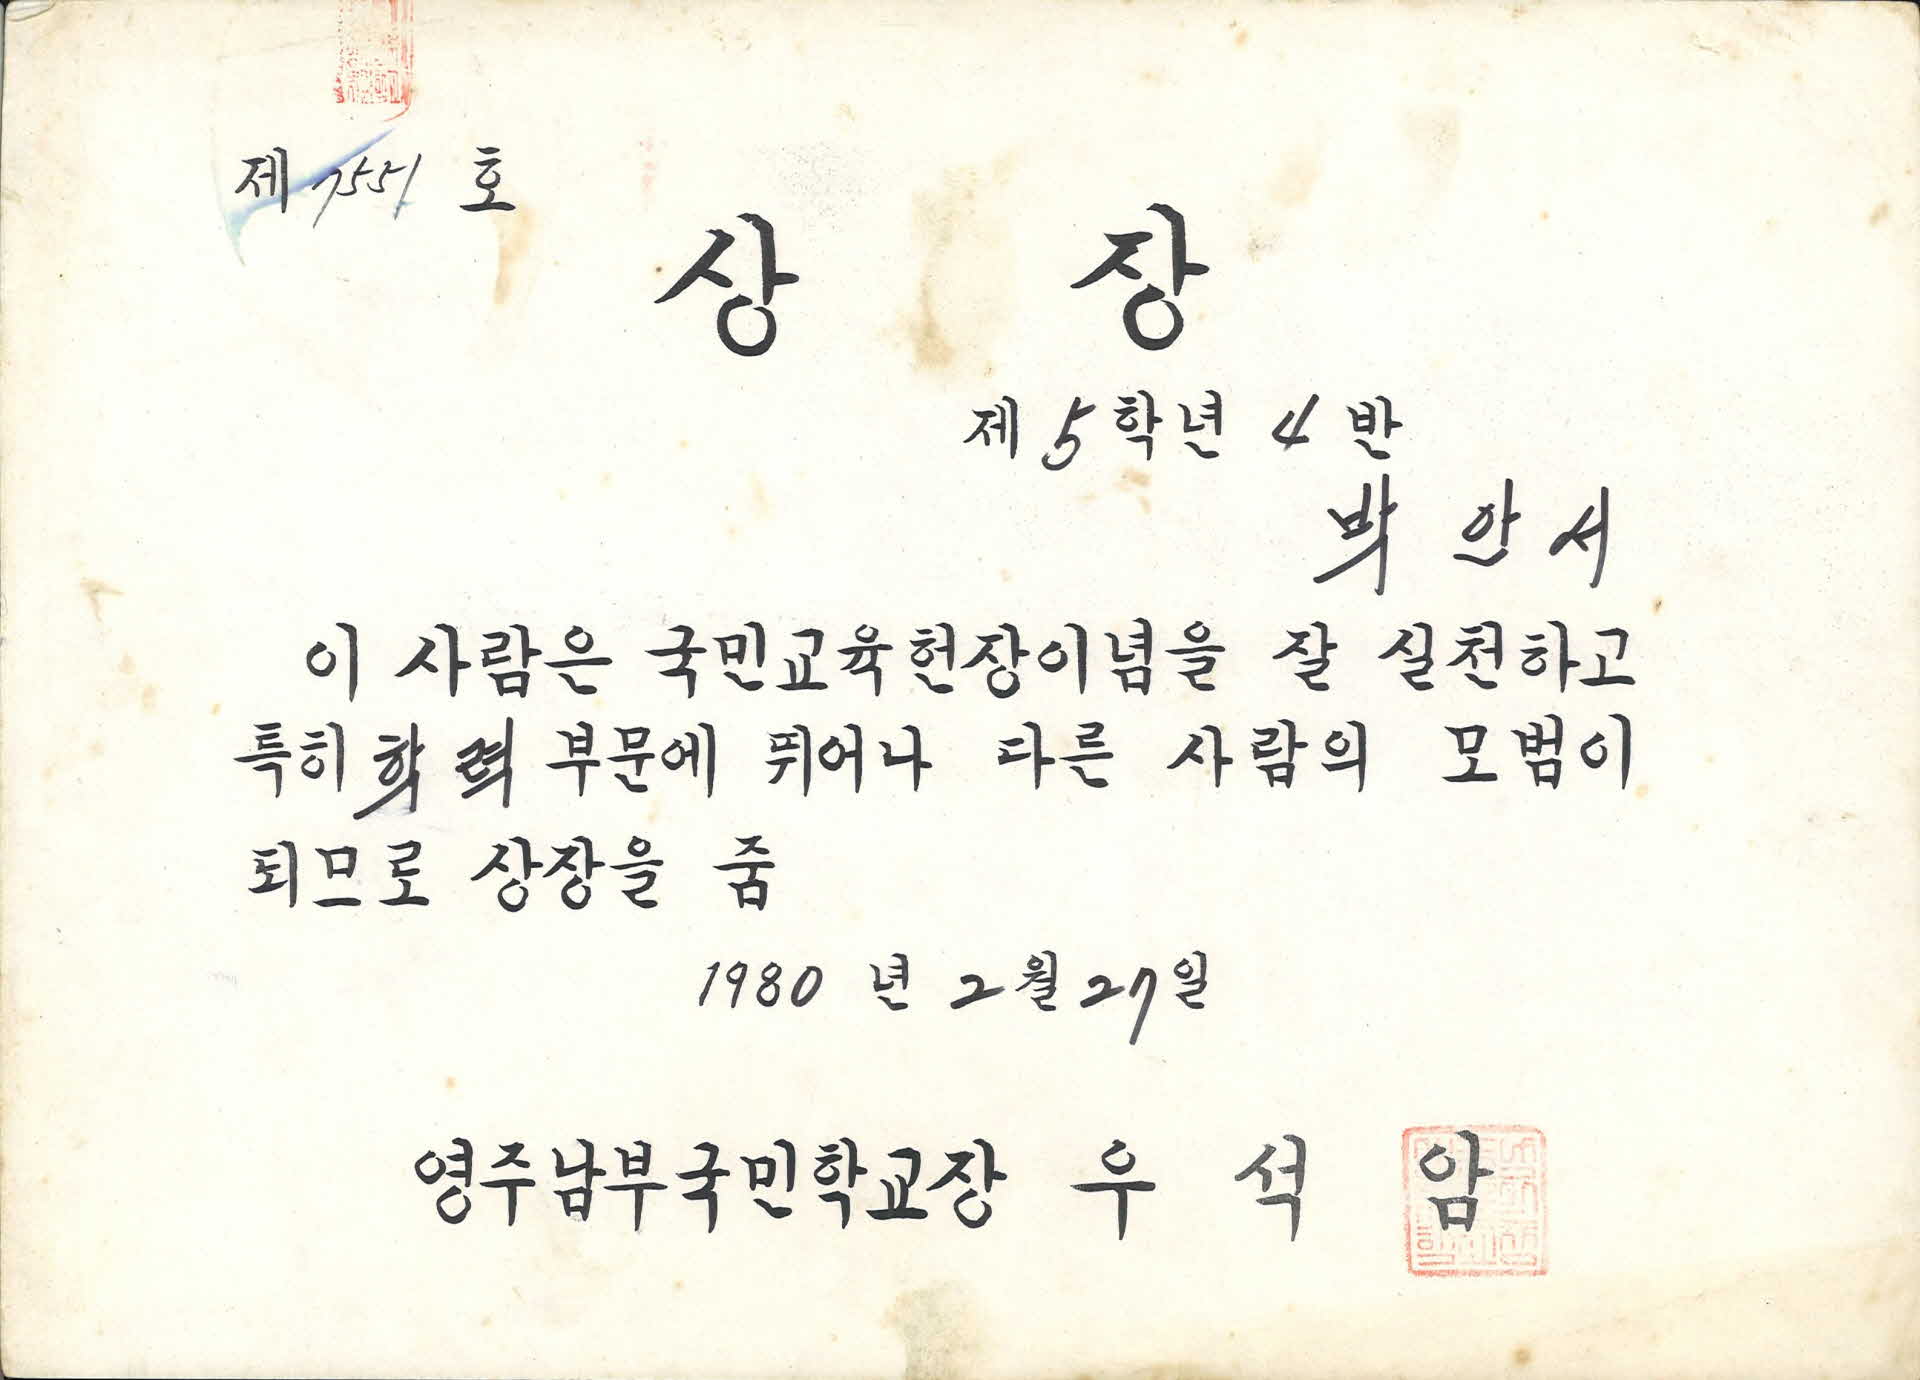 제 7551 호
상 장
제 5 학년 4 반
박 안 서
이 사람은 국민교육헌장이념을 잘 실천하고
특히 학력 부문에 뛰어나 다른 사람의 모범이
되므로 상장을 줌
1980 년 2월 27일
영주남부국민학교장 우 석 암